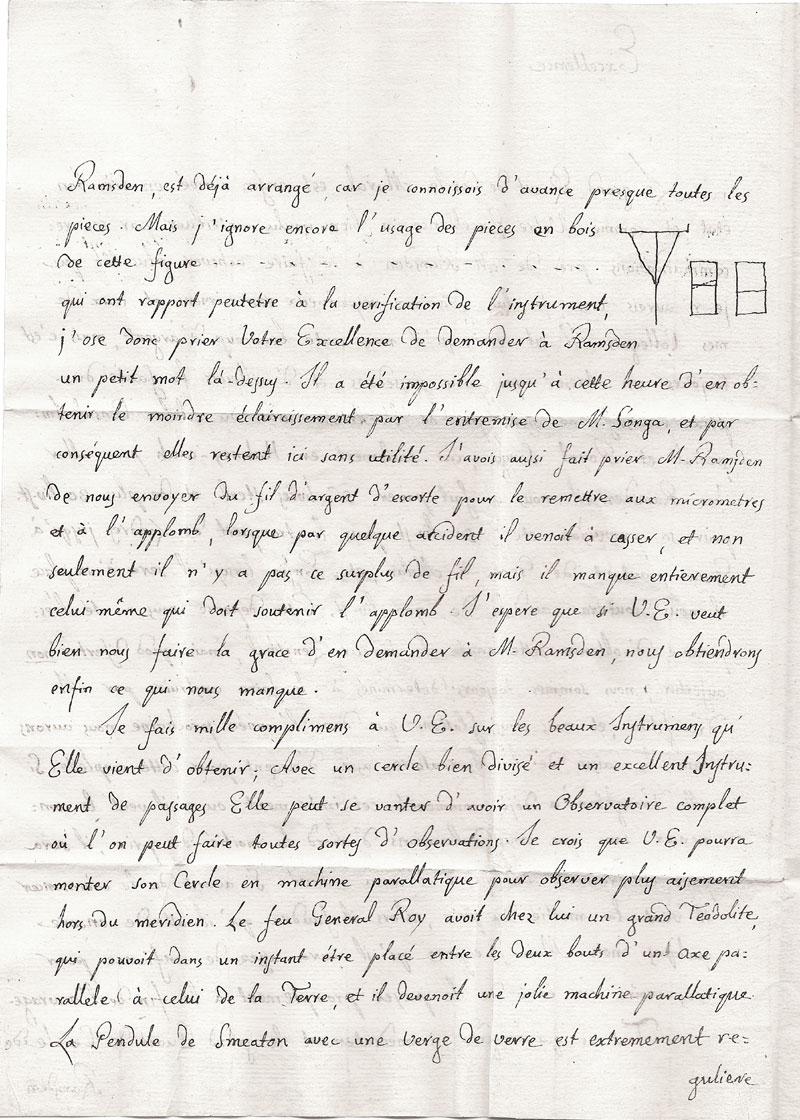 Ramsden, est déjà arrangé, car je connoissois d'avance presque toutes les
pieces. Mais j'ignore encore l'usage des pieces en bois
de cette figure
qui ont rapport peutetre à la verification de l'instrument,
j'ose donc prier Votre Excellence de demander à Ramsden
un petit mot là-dessus. Il a été impossible jusqu'à cette heure d'en ob:
tenir le moindre éclaircissement par l'entremise de M. Songa, et par
conséquent elles restent ici sans utilité. J'avois aussi fait prier M. Ramsden
de nous envoyer du fil d'argent d'escorte pour le remettre aux micrometres
et à l'applomb, lorsque par quelque accident il venoit à casser, et non
seulement il n'y a pas ce surplus de fil, mais il manque entièrement
celui même qui doit soutenir l'applomb. J'espere que si V.E. veut
bien nous faire la grace d'en demander à M. Ramsden, nous obtiendrons
enfin ce qui nous manque.
Je fais mille complimens à V.E. sur les beaux Instrumens qu'
Elle vient d'obtenir; Avec un cercle bien divisé et un excellent Instru:
ment de passages Elle peut se vanter d'avoir un Observatoire complet
où l'on peut faire toutes sortes d'observations. Je crois que V.E. pourra
monter son Cercle en machine parallatique pour observer plus aisement
hors du meridien. Le feu General Roy avoit chez lui un grand Teodolite,
qui pouvoit dans un instant être placé entre les deux bouts d'un axe pa:
rallele à celui de la Terre, et il devenoit une jolie machine parallatique.
La Pendule de Smeaton avec une verge de verre est extremement re=
guliere